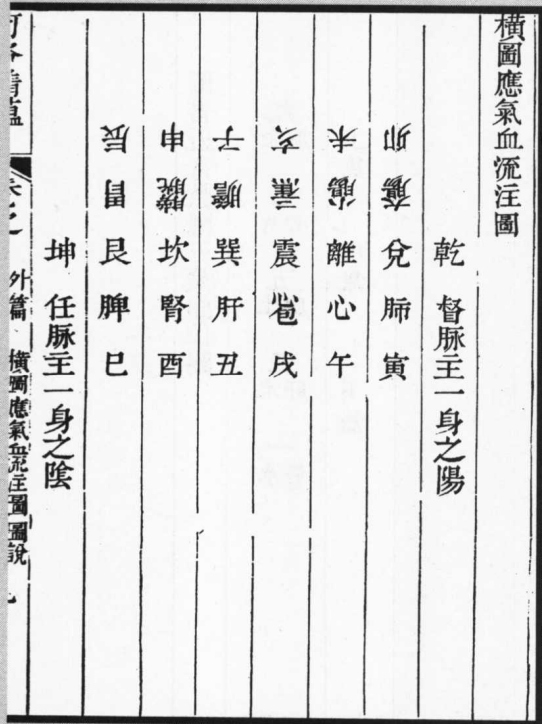 橫圖應氣血流注圖
乾 督脈主一身之陽
卯 大腸 兌 肺 寅
未 小腸 離 心 午
亥 三焦 震 包 戌
子 膽 巽 肝 丑
申 膀胱 坎 腎 酉
辰 胃 艮 脾 巳
坤 任脈主一身之陰
河洛精蘊 卷之 外篇 橫圖應氣血流注圖 圖說